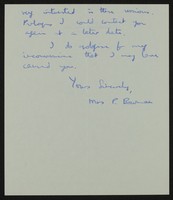 very interested in these remains.
Perhaps I could contact you
again at a later date.
I do apologise for any
inconvenience that I may have
caused you.
Yours Sincerely,
Mrs P